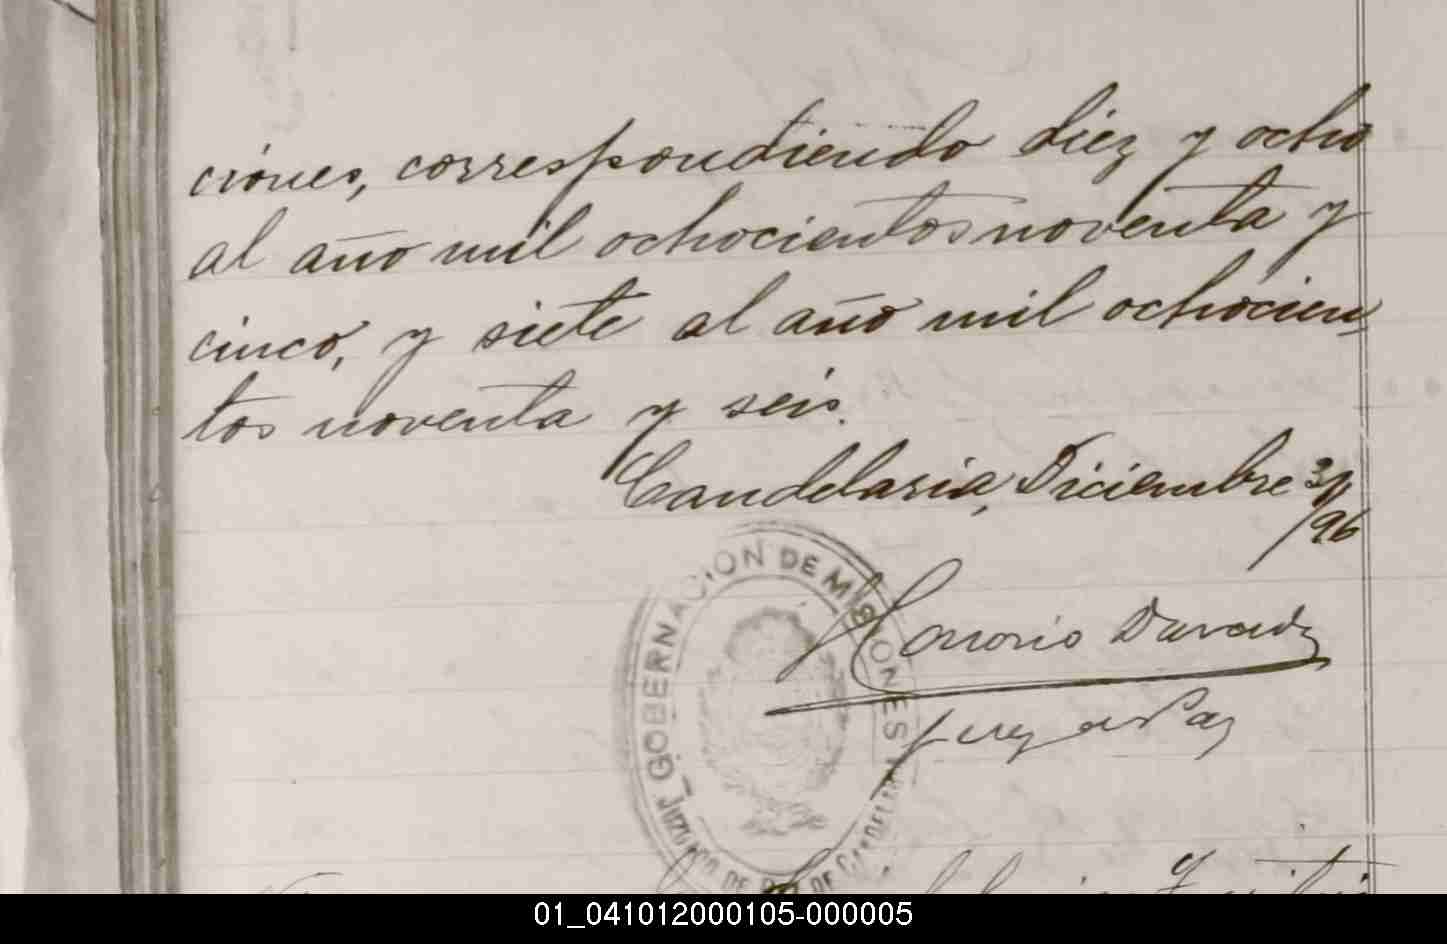 ciones, correspondiendo diez y ocho
al año mil ochocientos noventa y
cinco, y siete al año mil ochocien
tos noventa y seis.
Candelaria, Diciembre 31/96
Honorio
Juez de Paz
GOBERNACION DE MISIONES
JUZGADO DE PAZ DE CANDELARIA
01_041012000105-000005